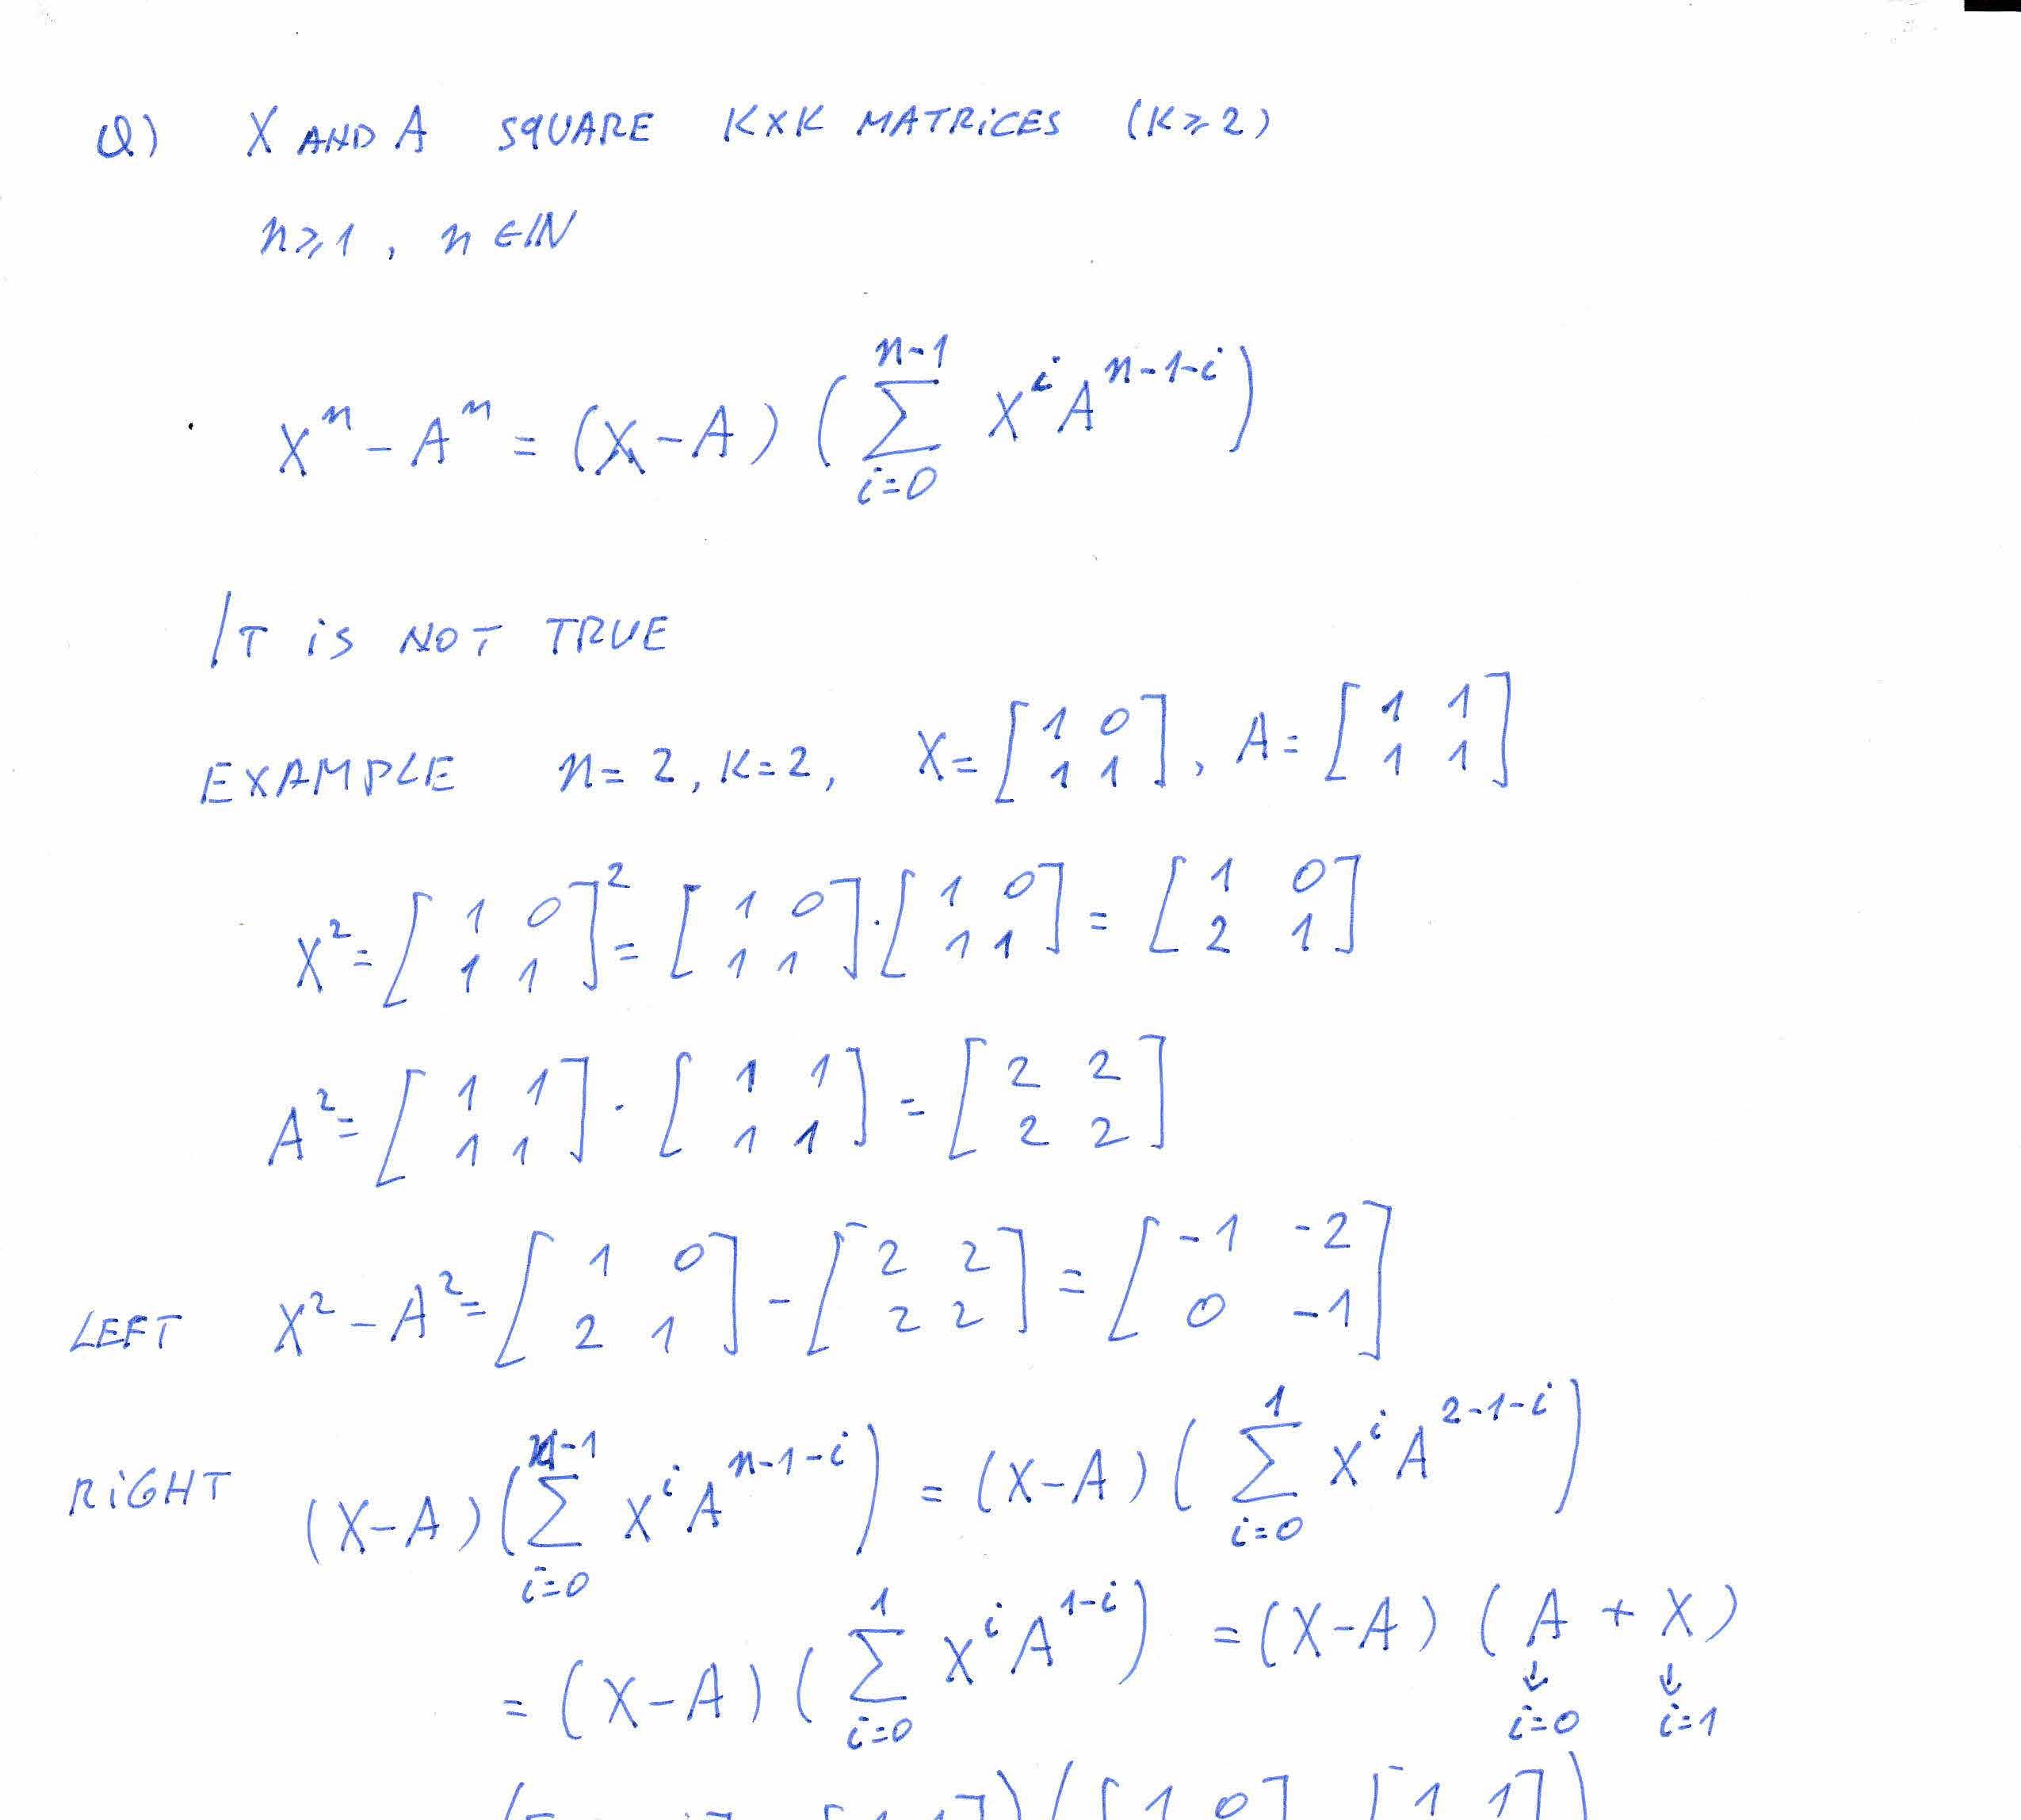 Q) X AND A SQUARE K×K MATRICES (K≥2)
n≥1, n∈ℕ
X^n - A^n = (X-A) (∑_{i=0}^{n-1} X^i A^{n-1-i})
IT IS NOT TRUE
EXAMPLE n=2, K=2, X = [1 0; 1 1], A = [1 1; 1 1]
X^2 = [1 0; 1 1]^2 = [1 0; 1 1] · [1 0; 1 1] = [1 0; 2 1]
A^2 = [1 1; 1 1] · [1 1; 1 1] = [2 2; 2 2]
LEFT X^2 - A^2 = [1 0; 2 1] - [2 2; 2 2] = [-1 -2; 0 -1]
RIGHT (X-A) (∑_{i=0}^{n-1} X^i A^{n-1-i}) = (X-A) (∑_{i=0}^{1} X^i A^{2-1-i})
= (X-A) (∑_{i=0}^{1} X^i A^{1-i}) = (X-A) (A + X)
↓ ↓
i=0 i=1